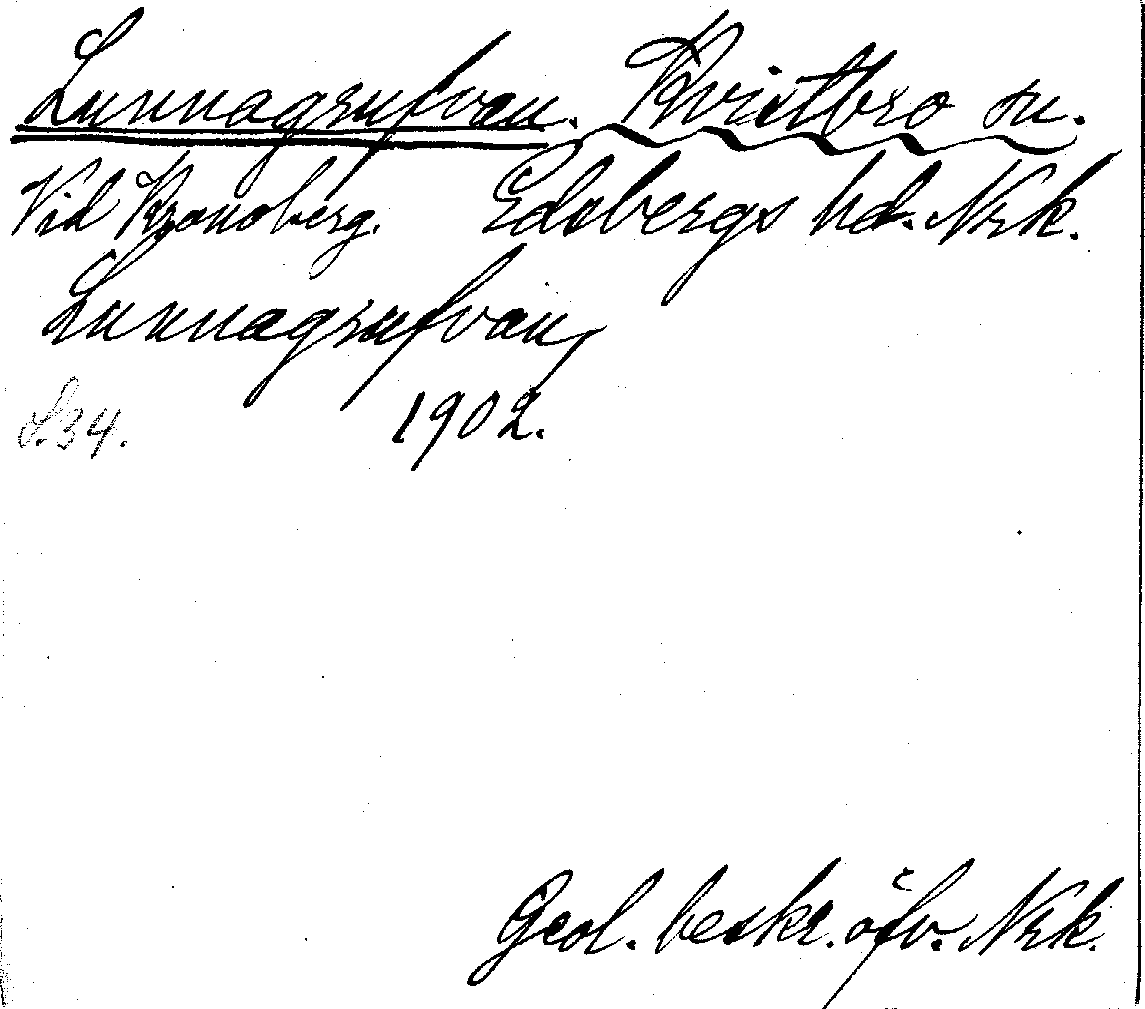 Lunnagrufvan. Kvistbro sn.
Vid Kronoberg. Edsbergs hd. Nrk.
Lunnagrufvan,
S. 34. 1902.
Geol. beskr. öfv. Nrk.